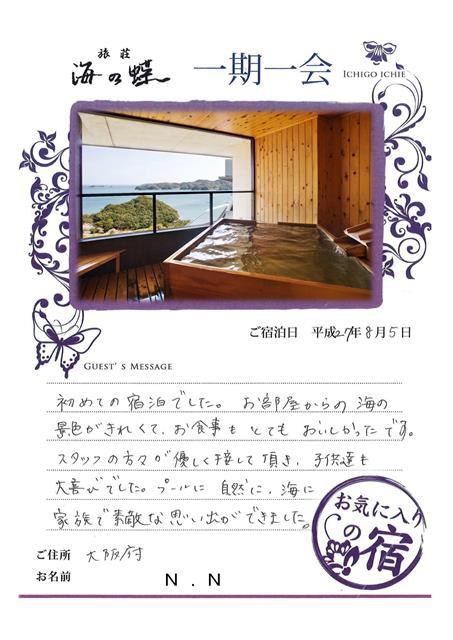 旅荘
海の蝶
一期一会
ICHIGO ICHIE
ご宿泊日 平成27年8月5日
GUEST'S MESSAGE
初めての宿泊でした。お部屋からの海の
景色がきれくて、お食事もとてもおいしかったです。
スタッフの方々が優しく接して頂き、子供達も
大喜びでした。プールに自然に、海に
家族で素敵な思い出ができました。
お気に入り
の宿
ご住所 大阪府
お名前 N.N